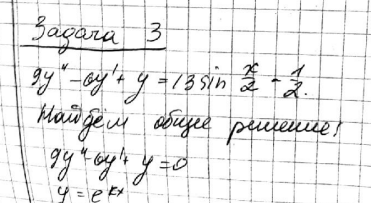 Задача 3
9y" - 6y' + y = 13 sin x/2 - 1/2.
Найдём общее решение:
9y" - 6y' + y = 0
y = e^kx